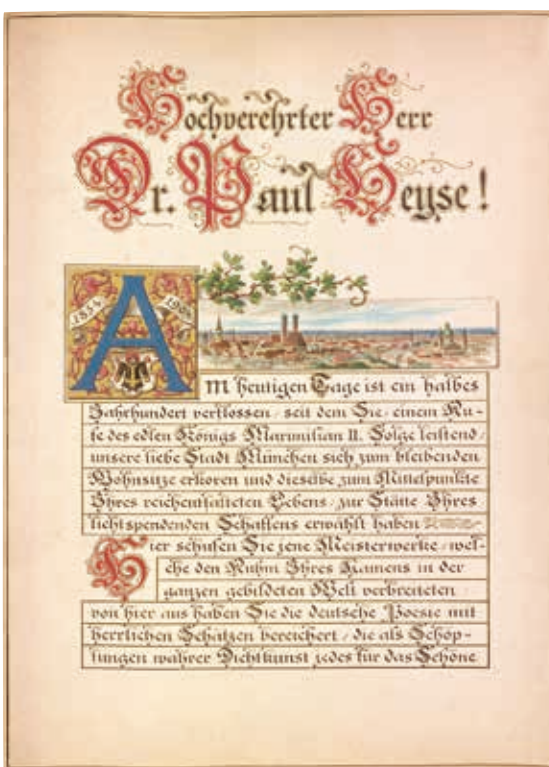 Hochverehrter Herr
Dr. Paul Heyse!
1854 1904
Am heutigen Tage ist ein halbes
Jahrhundert verflossen, seit dem Sie, einem Ru-
fe des edlen Königs Maximilian II. Folge leistend,
unsere liebe Stadt München sich zum bleibenden
Wohnsitze erkoren und dieselbe zum Mittelpunkte
Ihres reichentfalteten Lebens, zur Stätte Ihres
lichtspendenden Schaffens erwählt haben
Hier schufen Sie jene Meisterwerke, wel-
che den Ruhm Ihres Namens in der
ganzen gebildeten Welt verbreiteten
von hier aus haben Sie die deutsche Poesie mit
herrlichen Schätzen bereichert, die als Schöp-
fungen wahrer Dichtkunst jedes für das Schöne